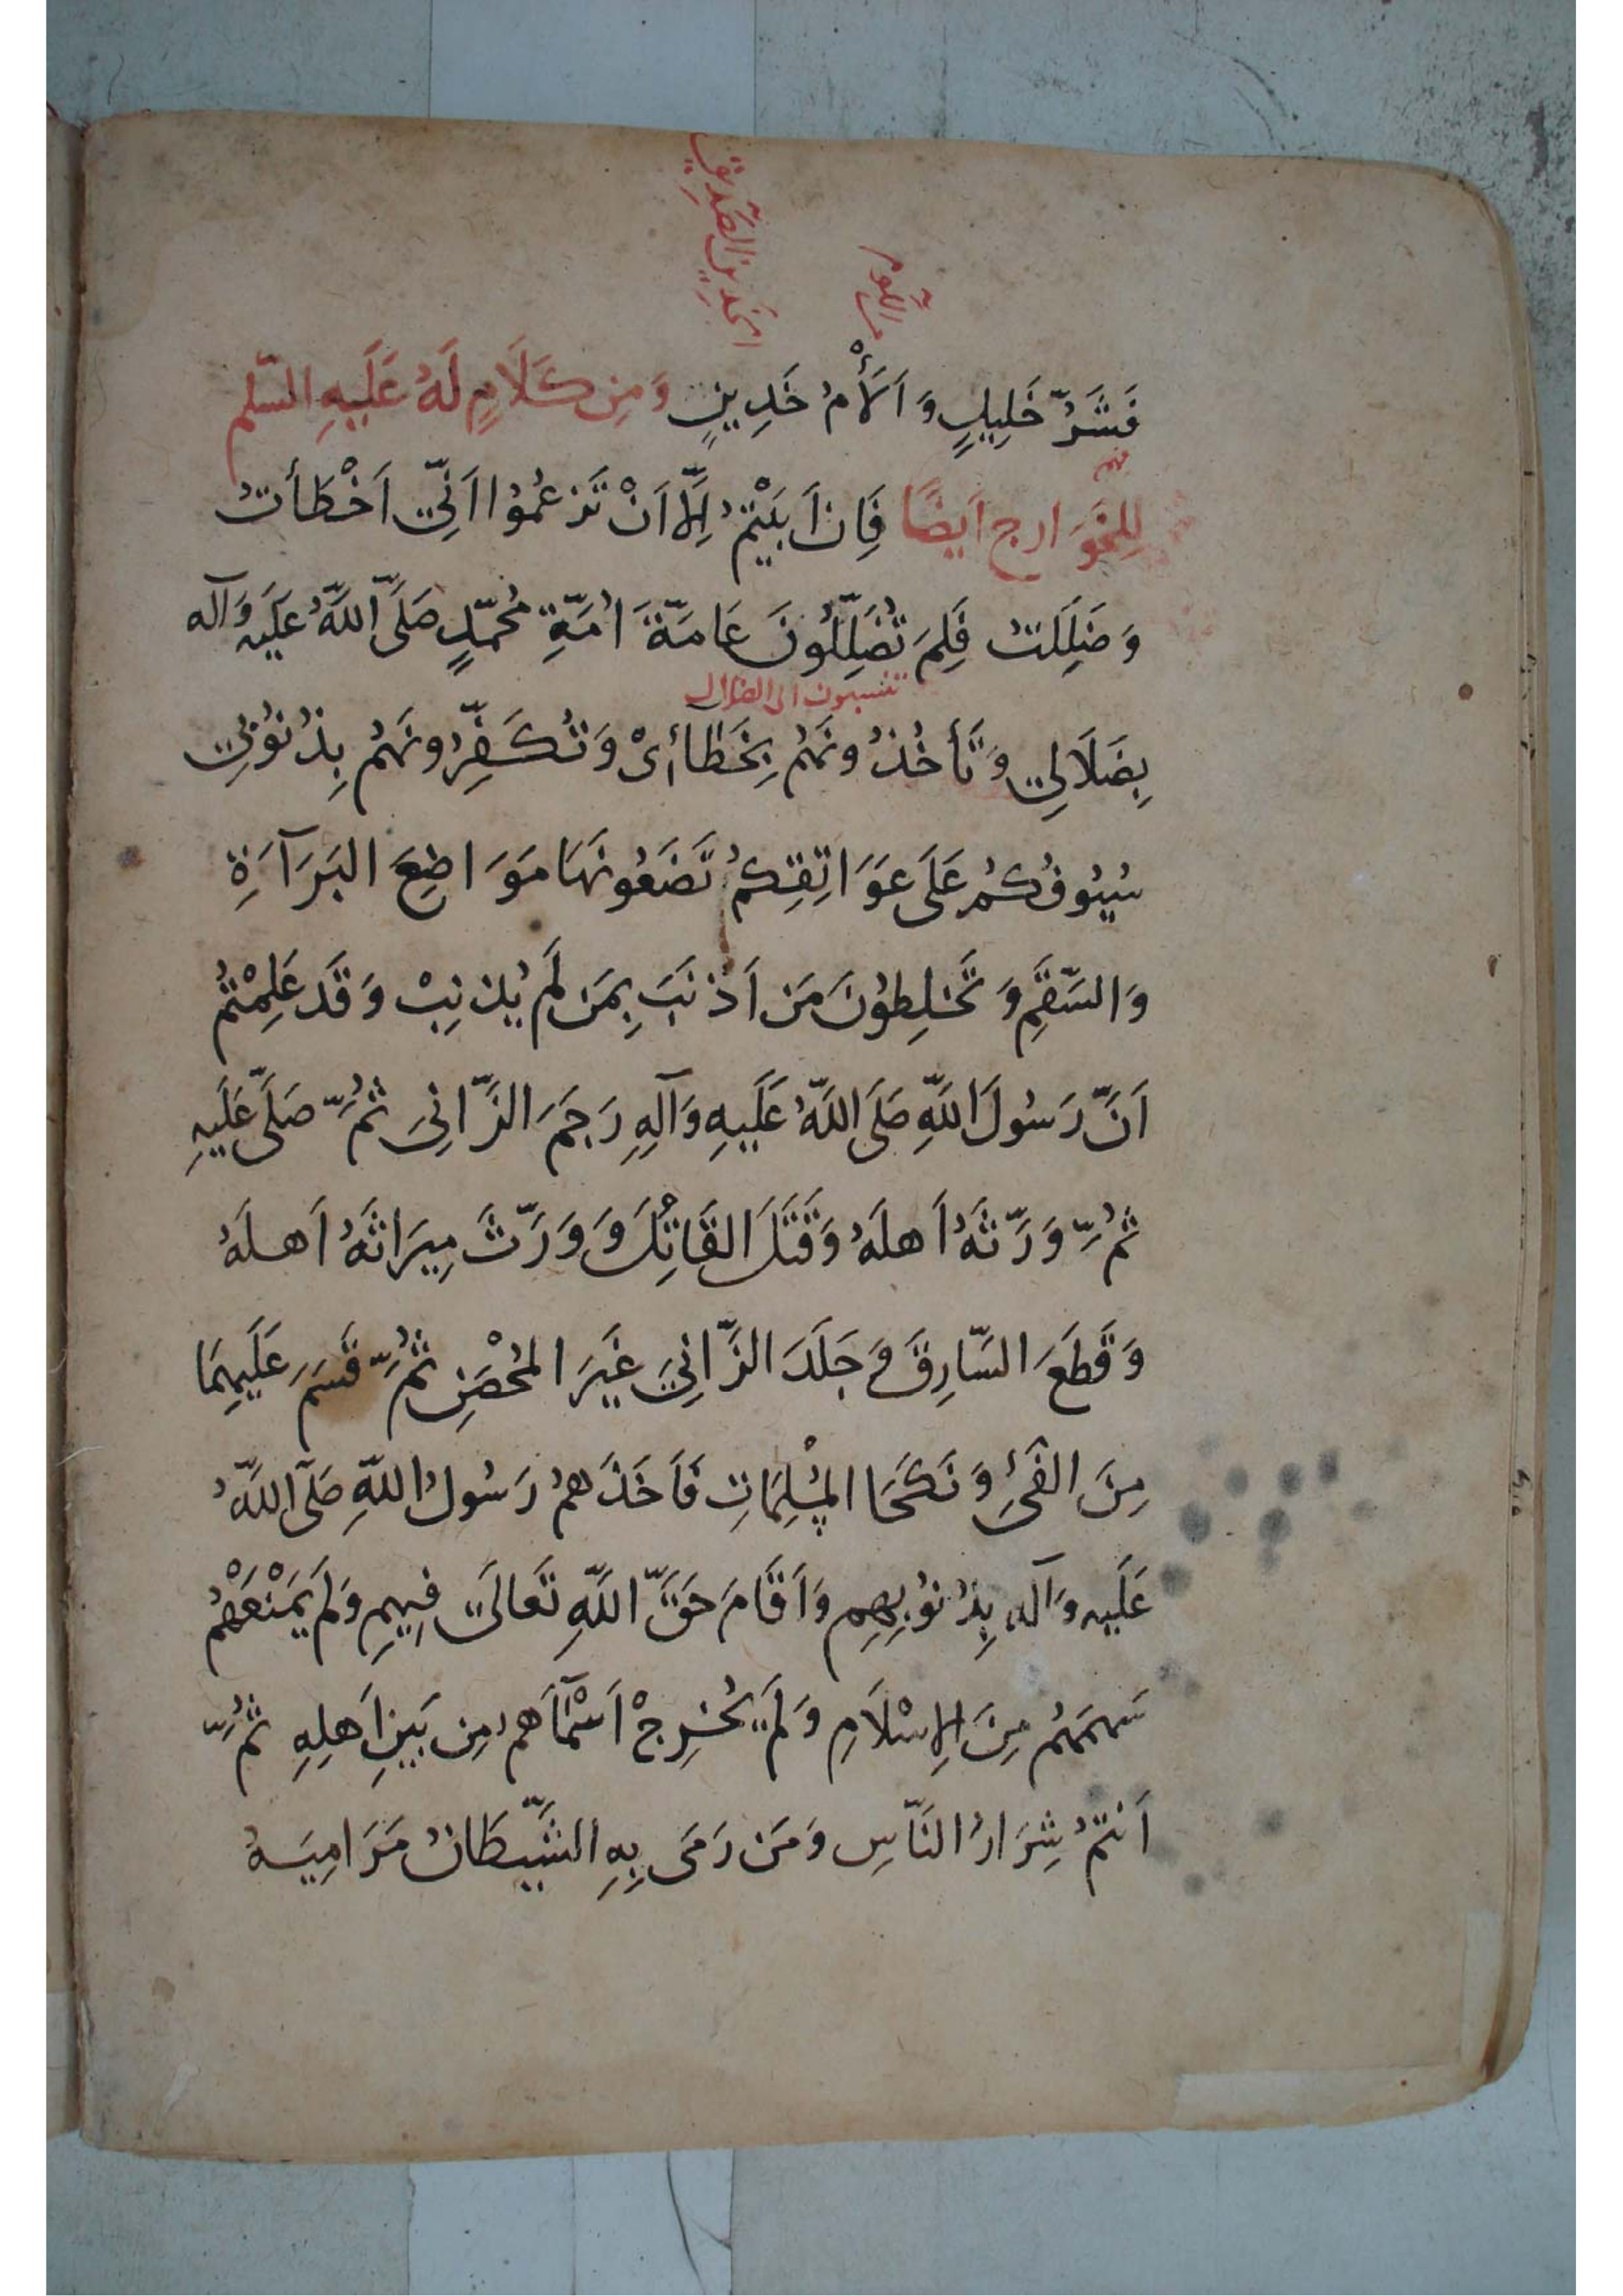 الخدين الصديق
من اللوم
فَشَرُّ خَلِيلٍ وَ اَلْأَمُ خَدِينٍ وَمِن كَلَامٍ لَهُ عَلَيهِ السّلم
لِلخَوَارِج اَيضًا فَاِن اَبَيْتُمْ اِلَّا اَنْ تَزعُمُوا اَنِّي اَخْطَأتُ
وَضَلِلَتُ فَلِمَ تُضَلِّلُونَ عَامَّةَ اُمَّةِ مُحَمَّدٍ صَلَّى اللهُ عَلَيه وَآله
تنسبون الى الضلال
بِضَلَالِي وَتَأخُذُونَهُم بِخَطَائى وَتُكَفِّرُونَهُم بِذُنُوبِي
سُيُوفُكُم عَلَى عَوَاتِقِكُم تَضَعُونَهَا مَوَاضِعَ البَرَآءَةِ
وَالسَّقَمِ وَتَخلِطُونَ مَن اَذنَبَ بِمَن لَم يُذنِبْ وَقَد عَلِمْتُم
اَنَّ رَسُولَ اللهِ صَلَى اللهُ عَلَيهِ وَآلِهِ رَجَمَ الزَّانِيَ ثُمَّ صَلَّى عَلَيهِ
ثُمَّ وَرَّثَهُ اَهلَهُ وَقَتَلَ القَاتِلَ وَ وَرَّثَ مِيرَاثَهُ اَهلَهُ
وَقَطَعَ السَّارِقَ وَ جَلَدَ الزَّانِيَ غَيرَ المُحْصَنِ ثُمَّ قَسَمَ عَلَيهِمَا
مِنَ الفَيْءِ وَ نَكَحَا المُسْلِمَاتِ فَاَخَذَهُم رَسُولُ اللهِ صَلَّى اللهُ
عَلَيه وَآله بِذُنُوبِهِم وَاَقَامَ حَقَّ اللهِ تَعَالَى فِيهِم وَلَم يَمْنَعْهُمْ
سَهمَهُم مِنَ الاِسْلَامِ وَلَم يُخرِجْ اَسْمَآءَهُم مِن بَينِ اَهلِهِ ثُمَّ
اَنتُمْ شِرَارُ النَّاسِ وَمَن رَمَى بِهِ الشَّيطَانُ مَرَامِيَهُ